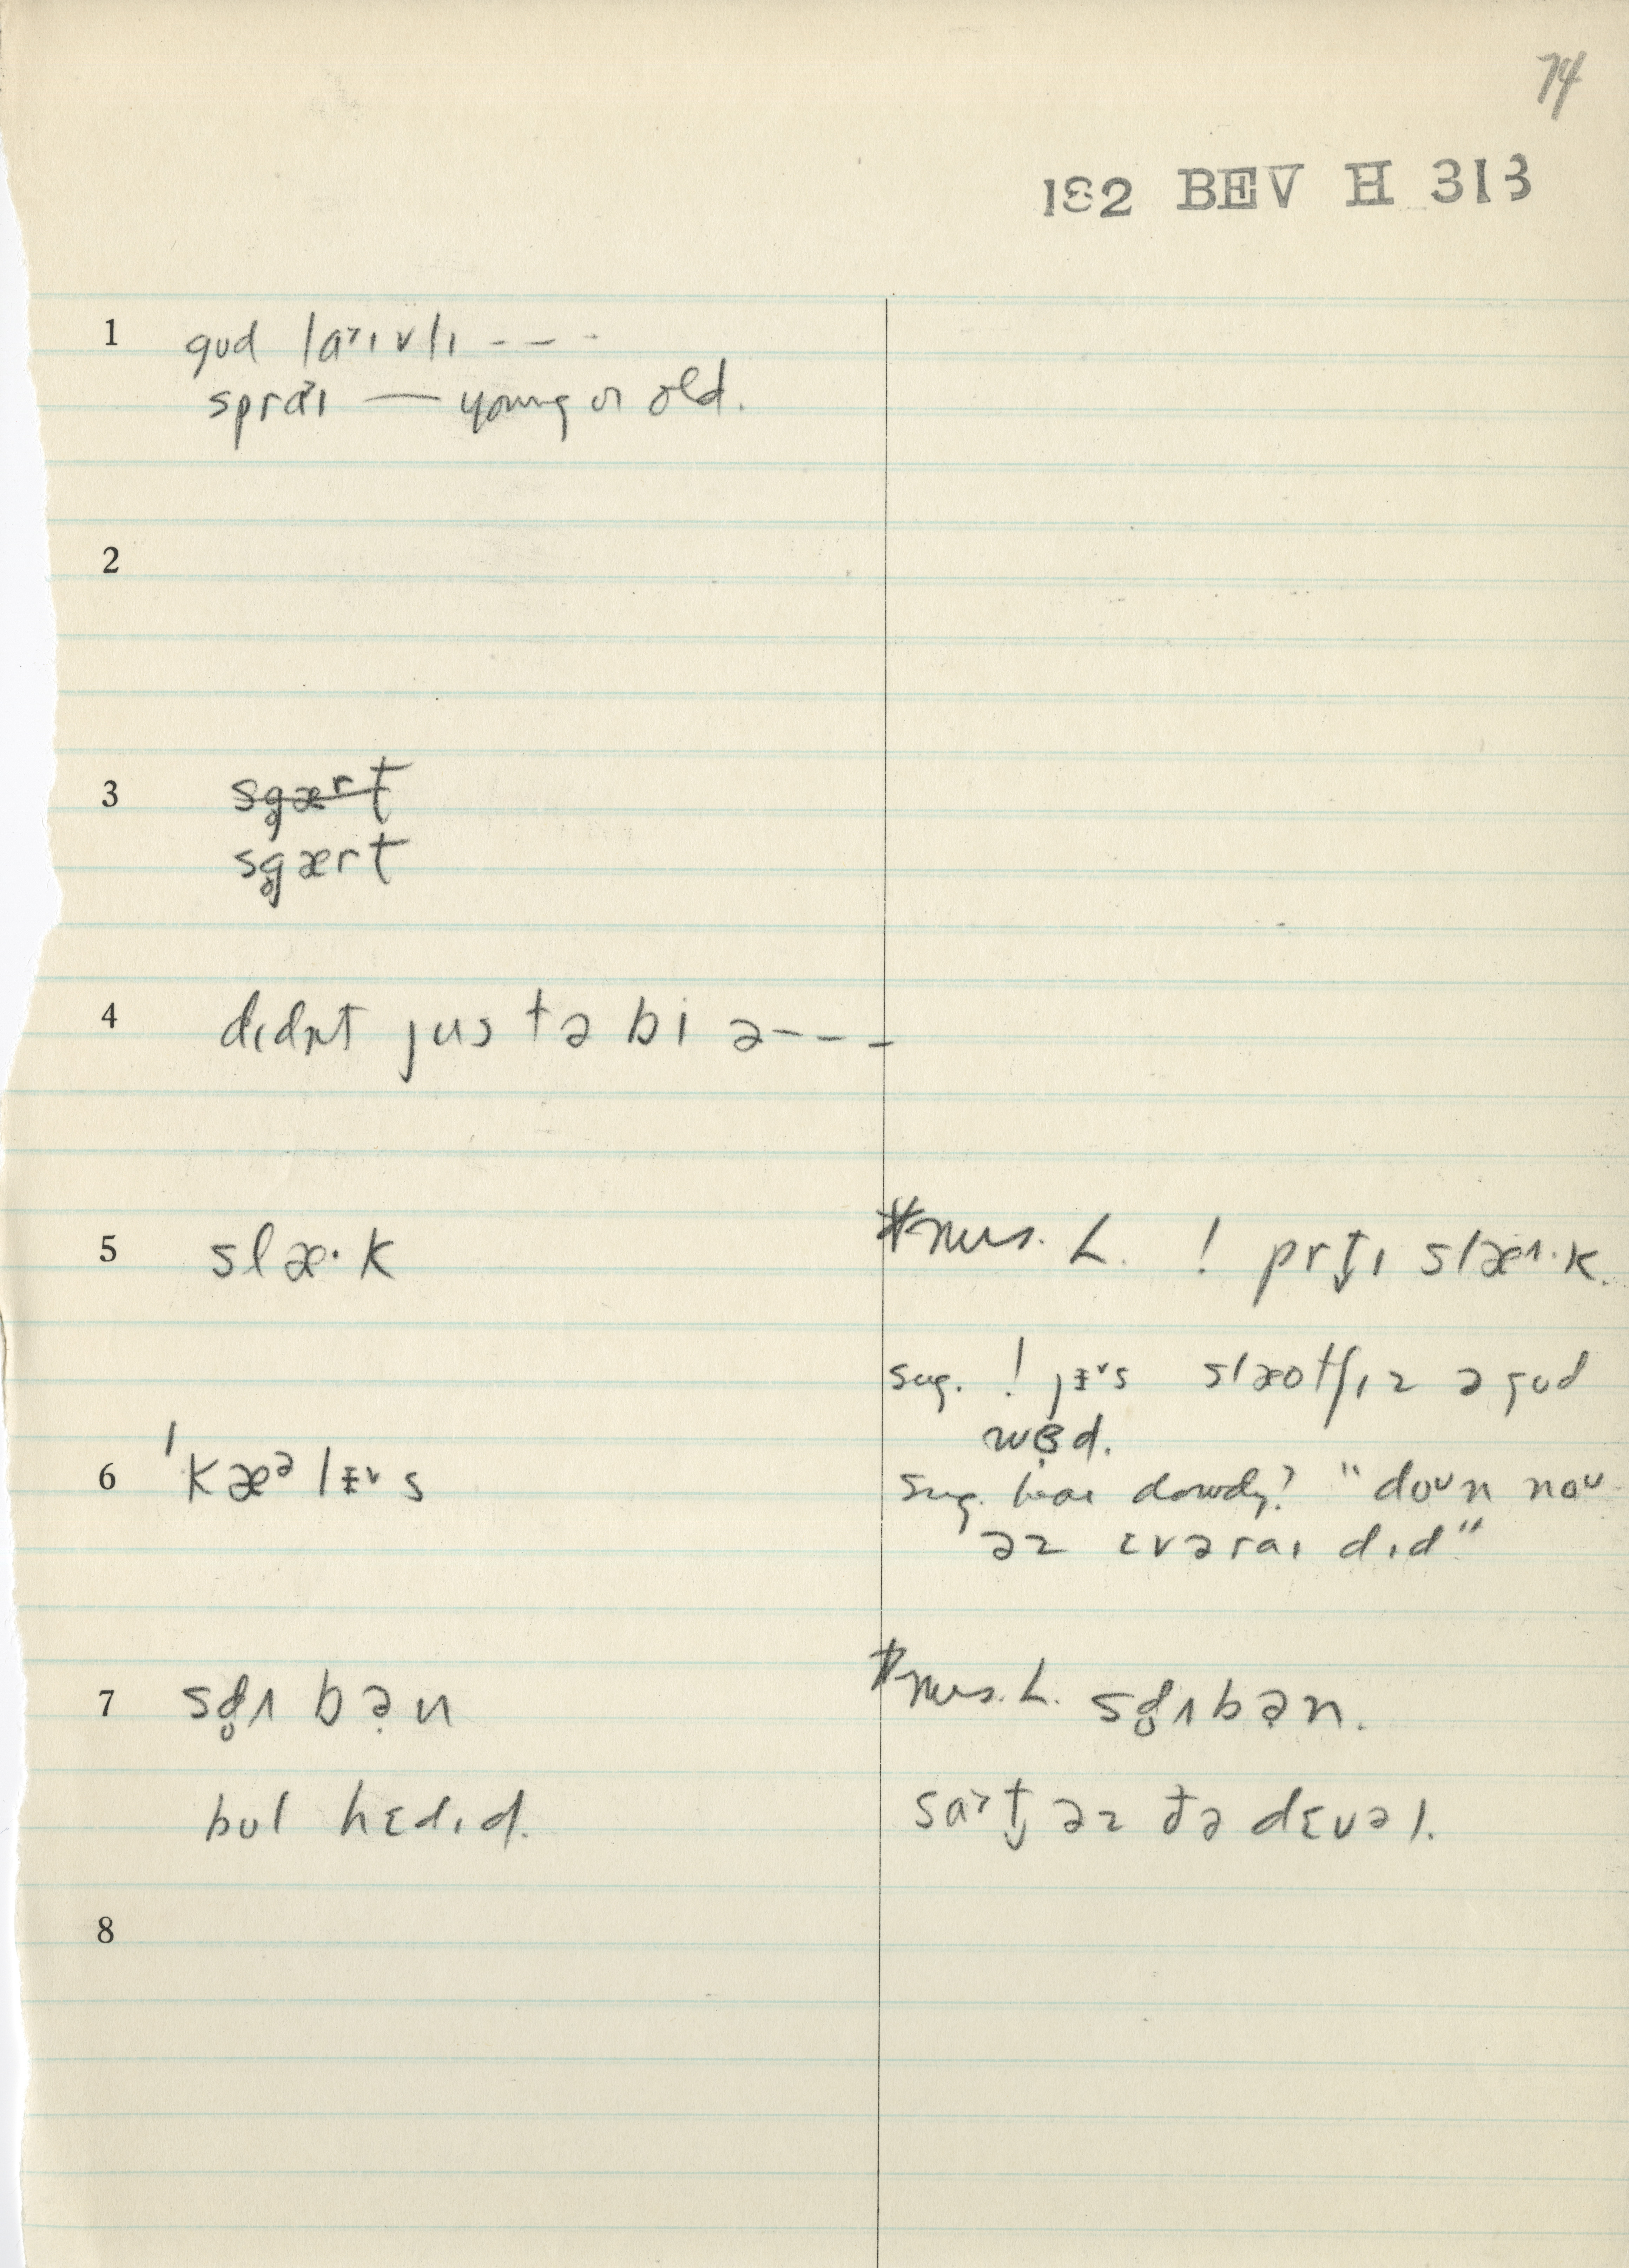 74
182 BEV H 313
1 gʊd laˑɪvlɪ - - -
spraˑɪ — young or old.
2
3 sg̥ært
sg̥ært
4 dɪdn̩t jus tə bi ə - - -
5 slæ·k
*Mrs. L. ! prt̬ɪ slæ·k.
sug. ! jɪs slæotʃɪz ə gʊd
wɜd.
6 ˈkæᵊlɪs
sug. hear dowdy? "doʊn noʊ
əz ɛvəraɪ dɪd"
7 sd̥ʌbən
*Mrs. L. sd̥ʌbən.
bʊl hɛdɪd.
saˑt̬ əz ðə dɛvəl.
8